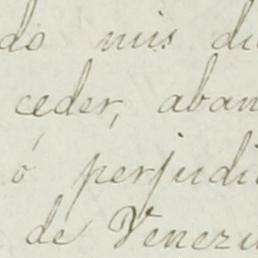 do mis di
ceder, aban
ó perjudi
de Venezu